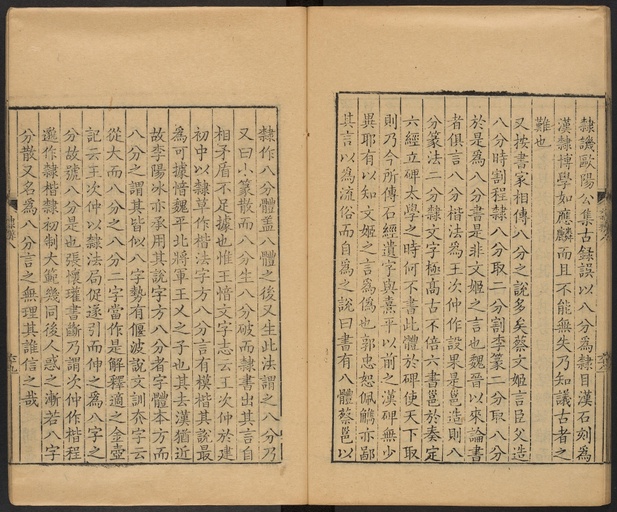 隸識歐陽公集古錄誤以八分為隸目漢石刻為
漢隸博學如應麟而且不能無失乃知議古者之
難也
又按書家相傳八分之說多矣蔡文姬言臣父造
八分時割程隸八分取二分割李篆二分取八分
於是為八分書是非文姬之言也魏晉以來論書
者俱言八分楷法為王次仲作設果是邕造則八
分篆法二分隸文字極高古不倍六書邕於奏定
六經立碑太學之時何不書此體於碑使天下取
則乃今所傳石經遺字與熹平以前之漢碑無少
異耶有以知文姬之言為偽也郭忠恕佩觿亦鄙
其言以為流俗而自為之說曰書有八體蔡邕以
隸作八分體蓋八體之後又生此法謂之八分乃
又曰小篆散而八分生八分破而隸書出其言自
相矛盾不足據也惟王愔文字志云王次仲於建
初中以隸草作楷法字方八分言有模楷其說最
為可據愔魏平北將軍王乂之子也其去漢猶近
故李陽冰亦承用其說字方八分者字體本方而
八分之謂其皆似八字勢有偃波說文訓夰字云
從大而八分之八分二字當作是解釋適之金壺
記云王次仲以隸法局促遂引而伸之為八字之
分故號八分是也張懷瓘書斷乃謂次仲作楷程
邈作隸楷隸初制大範幾同後人惑之漸若八字
分散又名為八分言之無理其誰信之哉